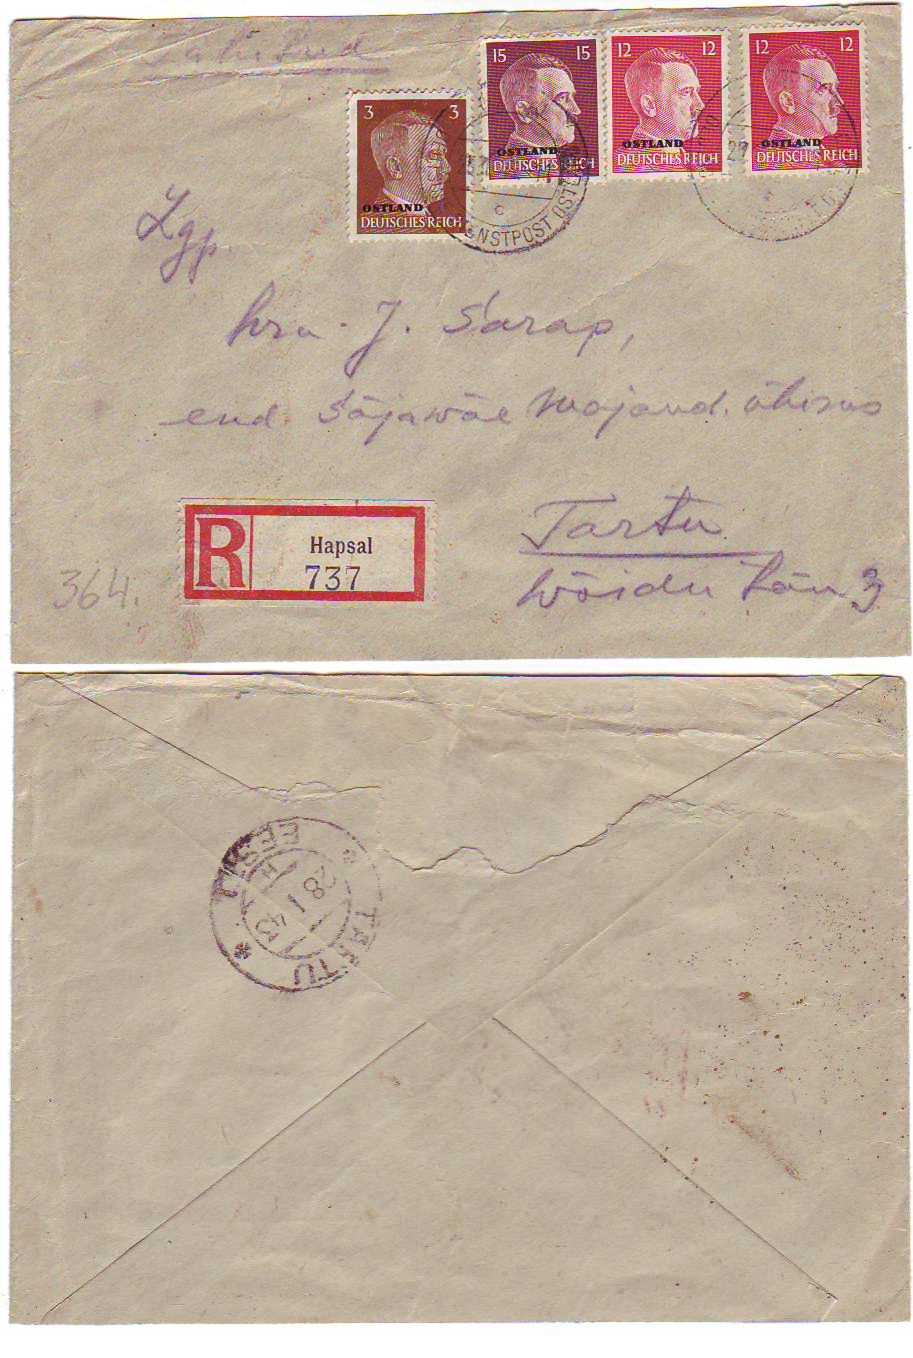 Tähitud
3 3
OSTLAND
DEUTSCHES REICH
15 15
OSTLAND
DEUTSCHES REICH
12 12
OSTLAND
DEUTSCHES REICH
12 12
OSTLAND
DEUTSCHES REICH
c
ENSTPOST OST
27
Lgp.
hra. J. Sarap,
end. Sõjawäe Majand. ühisus
Tartu
Wõidu tän 3
R
Hapsal
737
364.
TARTU
EESTI
28 I 43